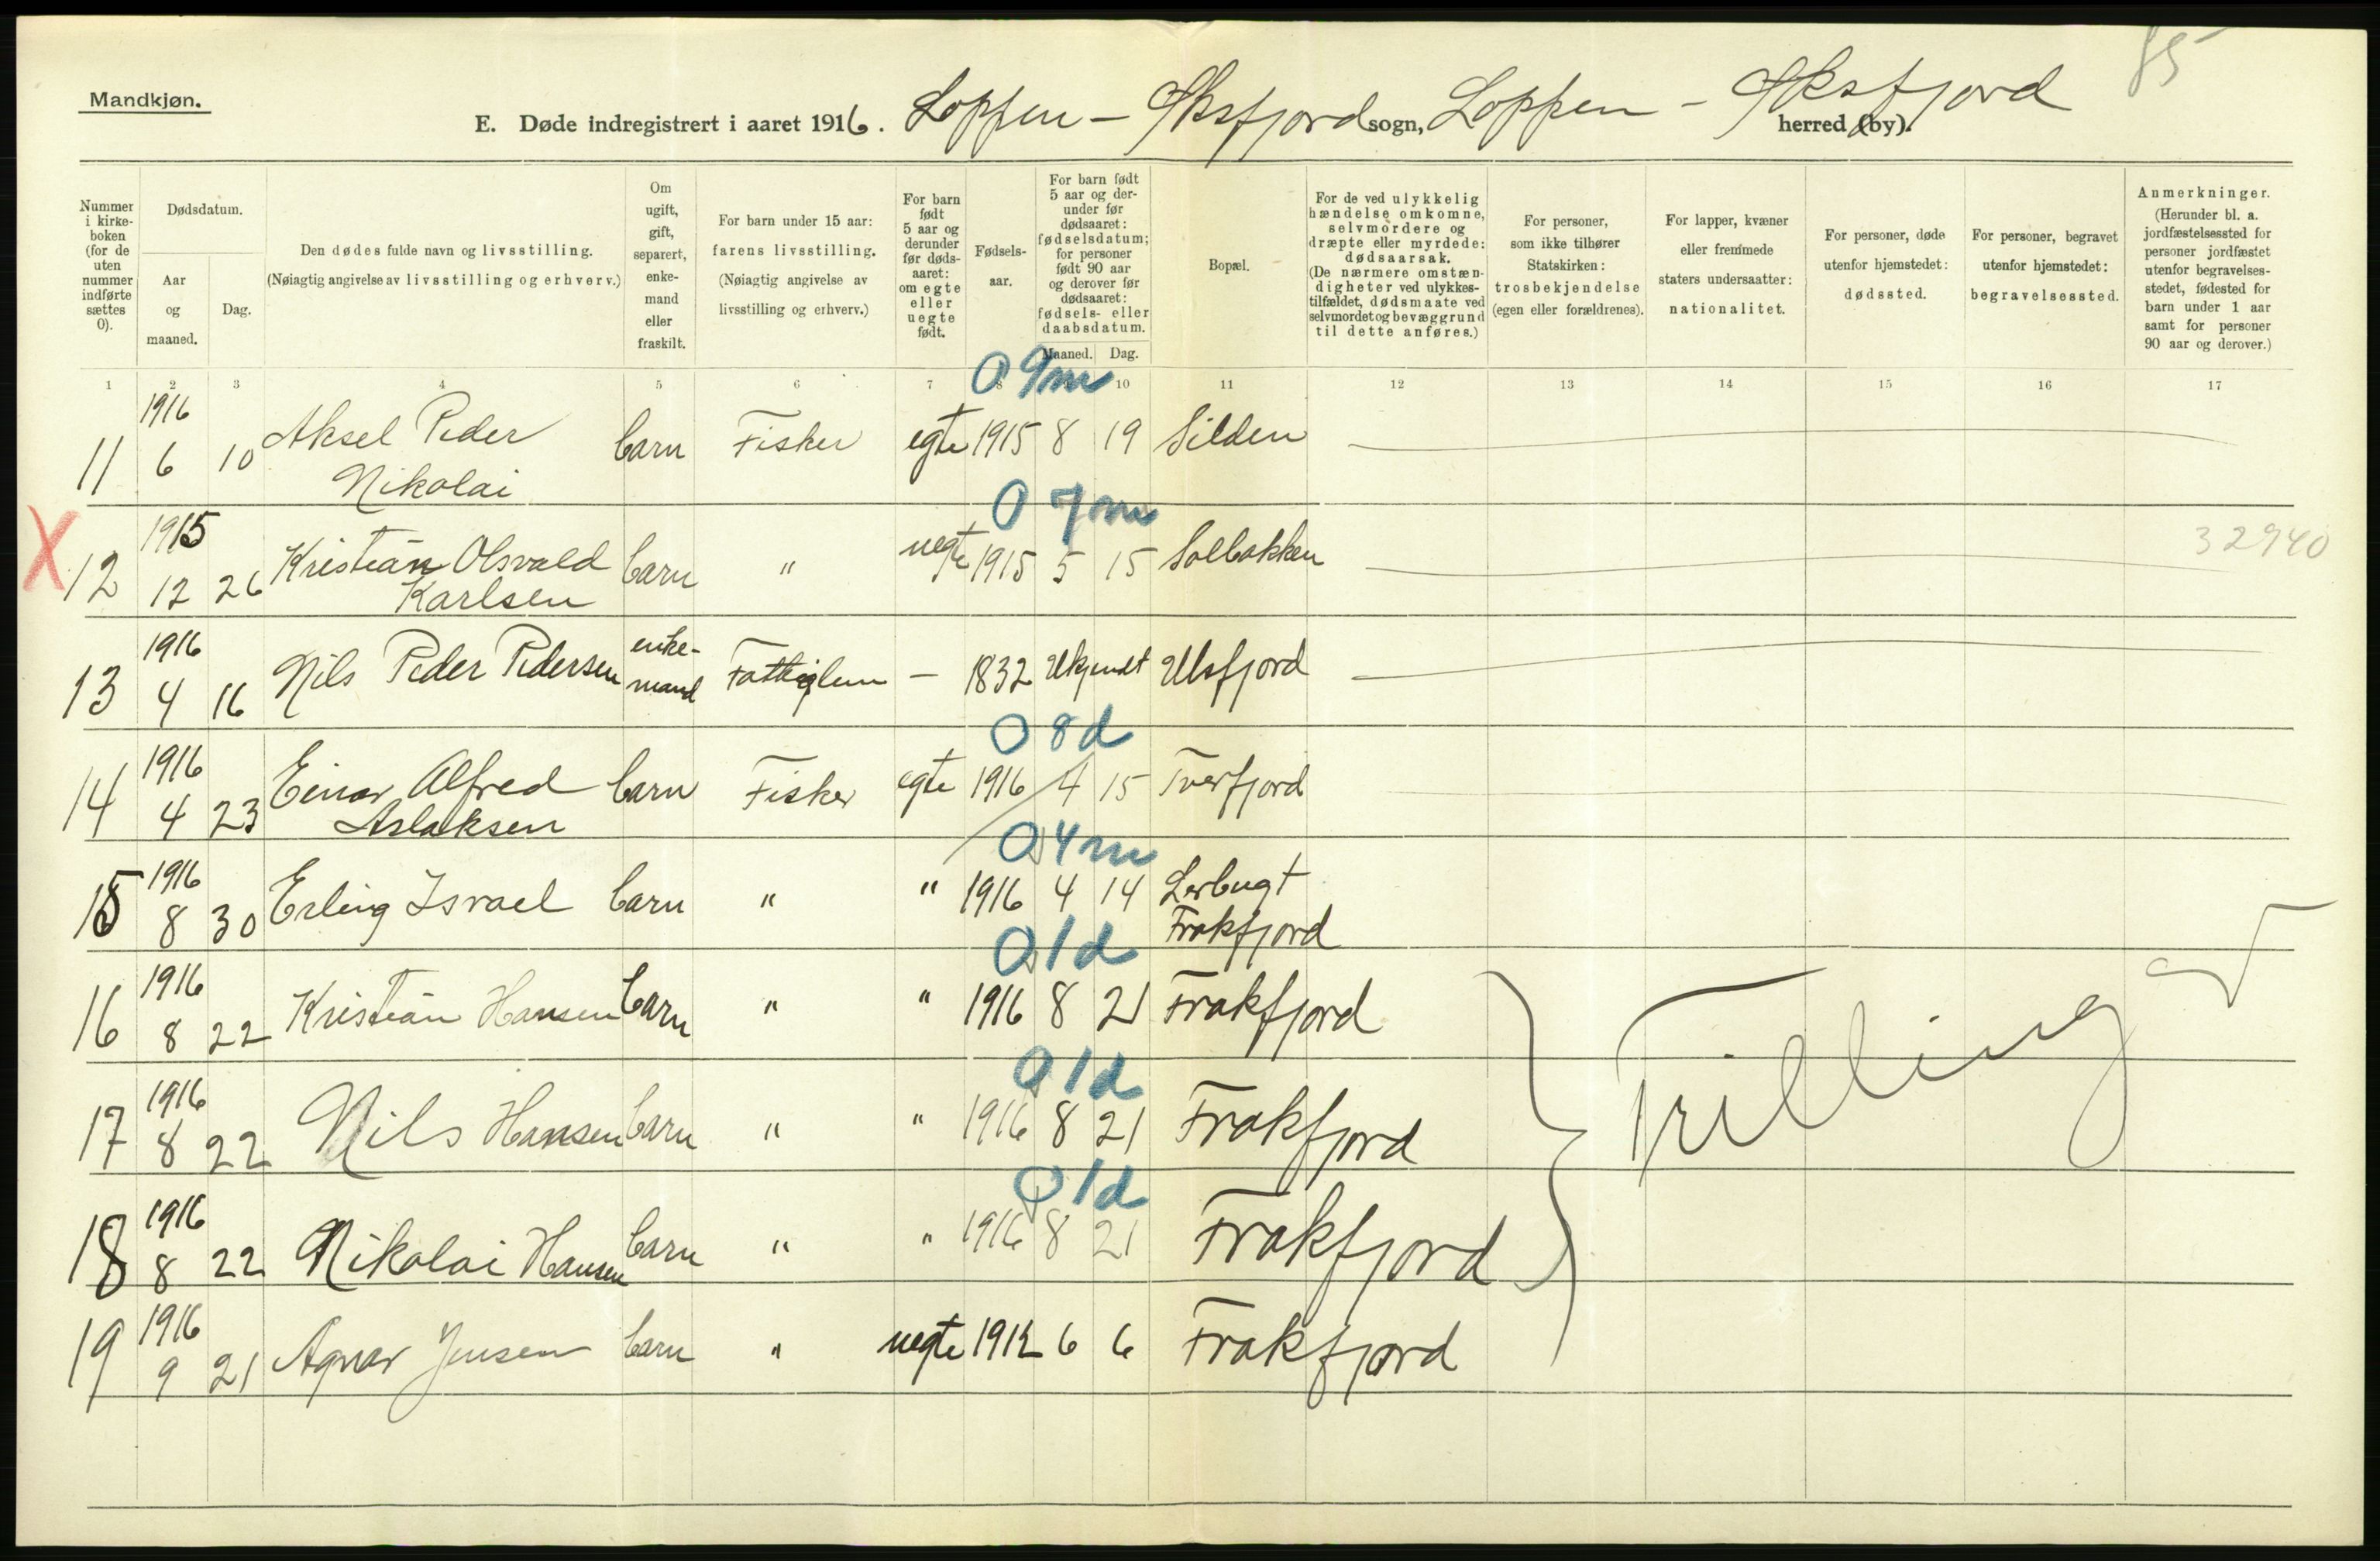 85
Mandkjøn.
E. Døde indregistrert i aaret 1916. Loppen - Øksfjord sogn, Loppen - Øksfjord herred (by).
Nummer i kirke-boken (for de uten nummer indførte sættes 0).
Dødsdatum.
Aar og maaned.
Dag.
Den dødes fulde navn og livsstilling.
(Nøiagtig angivelse av livsstilling og erhverv.)
Om ugift, gift, separert, enke-mand eller fraskilt.
For barn under 15 aar: farens livsstilling.
(Nøiagtig angivelse av livsstilling og erhverv.)
For barn født 5 aar og derunder før døds-aaret: om egte eller uegte født.
Fødsels-aar.
For barn født 5 aar og der-under før dødsaaret: fødselsdatum; for personer født 90 aar og derover før dødsaaret: fødsels- eller daabsdatum.
Maaned. Dag.
Bopæl.
For de ved ulykkelig hændelse omkomne, selvmordere og dræpte eller myrdede: dødsaarsak.
(De nærmere omstæn-digheter ved ulykkes-tilfældet, dødsmaate ved selvmordet og bevæggrund til dette anføres.)
For personer, som ikke tilhører Statskirken: trosbekjendelse (egen eller forældrenes).
For lapper, kvæner eller fremmede staters undersaatter: nationalitet.
For personer, døde utenfor hjemstedet: dødssted.
For personer, begravet utenfor hjemstedet: begravelsessted.
Anmerkninger.
(Herunder bl. a. jordfæstelsessted for personer jordfæstet utenfor begravelses-stedet, fødested for barn under 1 aar samt for personer 90 aar og derover.)
1 2 3 4 5 6 7 8 10 11 12 13 14 15 16 17
0 9m
11 1916 6 10 Aksel Peder Nikolai barn Fisker egte 1915 8 19 Silden
0 7m
X 12 1915 12 26 Kristian Olsvald Karlsen barn " uegte 1915 5 15 Solbakken 32940
13 1916 4 16 Nils Peder Pedersen enke-mand Fattiglem - 1832 Ukjendt Ulsfjord
0 8d
14 1916 4 23 Einar Alfred Aslaksen barn Fisker egte 1916 4 15 Tverfjord
0 4m
15 1916 8 30 Erling Israel barn " " 1916 4 14 Lerbugt Frakfjord
0 1d
16 1916 8 22 Kristian Hansen barn " " 1916 8 21 Frakfjord
0 1d
17 1916 8 22 Nils Hansen barn " " 1916 8 21 Frakfjord Trilling
0 1d
18 1916 8 22 Nikolai Hansen barn " " 1916 8 21 Frakfjord
19 1916 9 21 Agnar Jensen barn " uegte 1912 6 6 Frakfjord